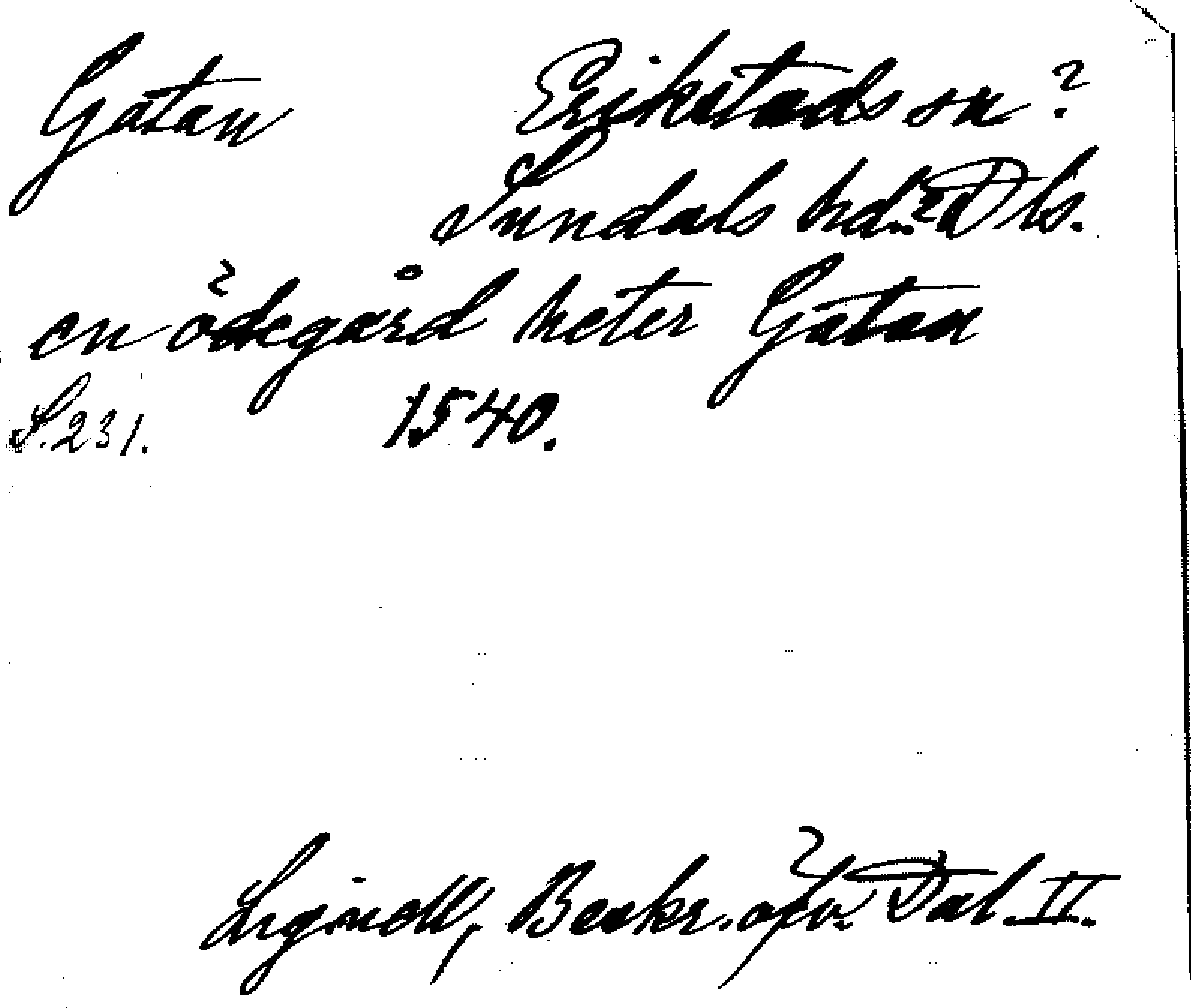 Gatan Erikstads sn ?
Sundals hd. ? Dls.
en ödegård heter Gatan
S. 231. 1540.
Lignell, Beskr. öfv. Dal II.